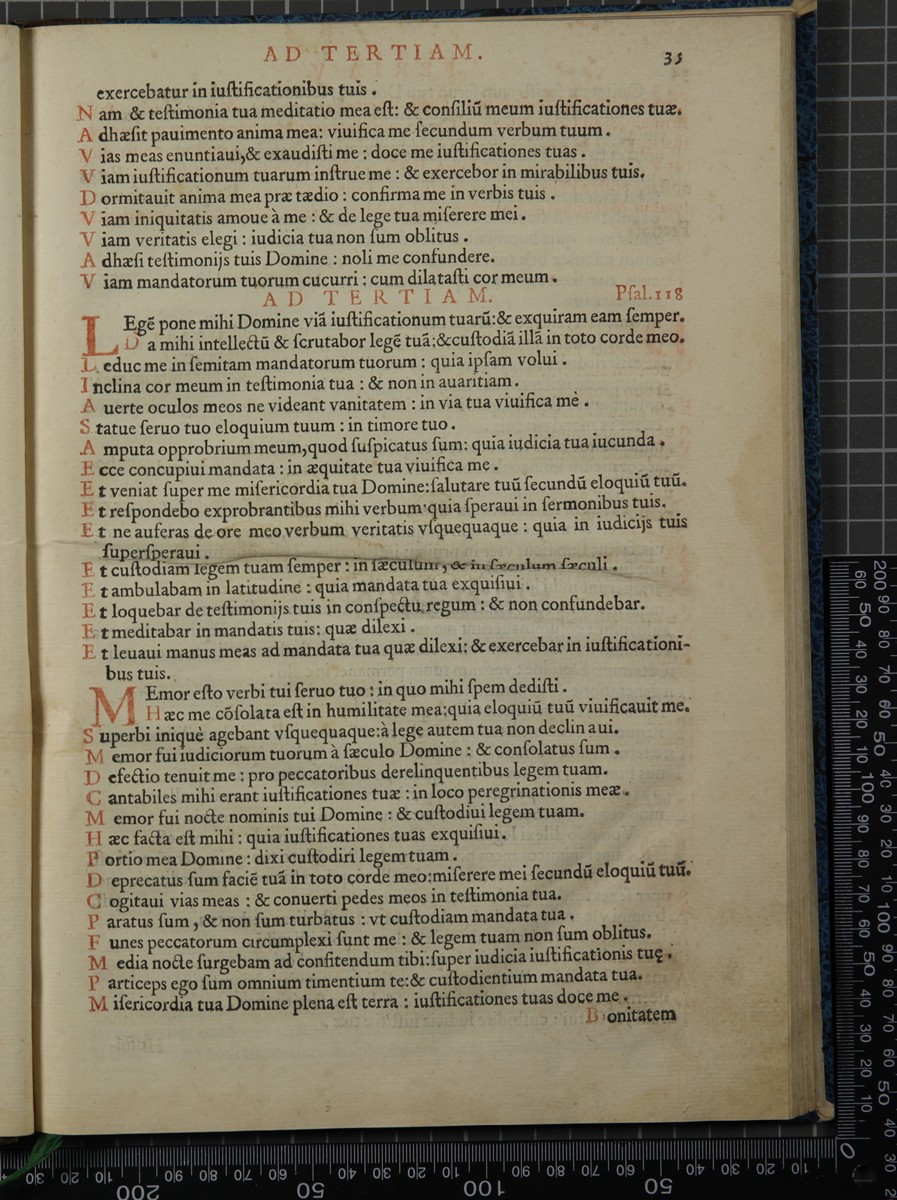 AD TERTIAM. 35
exercebatur in iuſtificationibus tuis .
N am & teſtimonia tua meditatio mea eſt: & conſiliū meum iuſtificationes tuæ.
A dhæſit pauimento anima mea: viuifica me ſecundum verbum tuum .
V ias meas enuntiaui,& exaudiſti me : doce me iuſtificationes tuas .
V iam iuſtificationum tuarum inſtrue me : & exercebor in mirabilibus tuis.
D ormitauit anima mea præ tædio : confirma me in verbis tuis .
V iam iniquitatis amoue à me : & de lege tua miſerere mei .
V iam veritatis elegi : iudicia tua non ſum oblitus .
A dhæſi teſtimonijs tuis Domine : noli me confundere.
V iam mandatorum tuorum cucurri : cum dilataſti cor meum .
AD TERTIAM. Pſal.118
LEgē pone mihi Domine viā iuſtificationum tuarū:& exquiram eam ſemper.
D a mihi intellectū & ſcrutabor legē tuā:&cuſtodiā illā in toto corde meo.
D educ me in ſemitam mandatorum tuorum : quia ipſam volui .
I nclina cor meum in teſtimonia tua : & non in auaritiam .
A uerte oculos meos ne videant vanitatem : in via tua viuifica me .
S tatue ſeruo tuo eloquium tuum : in timore tuo .
A mputa opprobrium meum,quod ſuſpicatus ſum: quia iudicia tua iucunda .
E cce concupiui mandata : in æquitate tua viuifica me .
E t veniat ſuper me miſericordia tua Domine:ſalutare tuū ſecundū eloquiū tuū.
E t reſpondebo exprobrantibus mihi verbum:quia ſperaui in ſermonibus tuis.
E t ne auferas de ore meo verbum veritatis vſquequaque : quia in iudicijs tuis
ſuperſperaui .
E t cuſtodiam legem tuam ſemper : in ſæculum, & in ſæculum ſæculi .
E t ambulabam in latitudine : quia mandata tua exquiſiui .
E t loquebar de teſtimonijs tuis in conſpectu regum : & non confundebar.
E t meditabar in mandatis tuis: quæ dilexi .
E t leuaui manus meas ad mandata tua quæ dilexi: & exercebar in iuſtificationi-
bus tuis.
MEmor eſto verbi tui ſeruo tuo : in quo mihi ſpem dediſti .
H æc me cōſolata eſt in humilitate mea:quia eloquiū tuū viuificauit me.
S uperbi iniquè agebant vſquequaque:à lege autem tua non declinaui.
M emor fui iudiciorum tuorum à ſæculo Domine : & conſolatus ſum .
D efectio tenuit me : pro peccatoribus derelinquentibus legem tuam.
C antabiles mihi erant iuſtificationes tuæ : in loco peregrinationis meæ .
M emor fui nocte nominis tui Domine : & cuſtodiui legem tuam.
H æc facta eſt mihi : quia iuſtificationes tuas exquiſiui .
P ortio mea Domine : dixi cuſtodiri legem tuam .
D eprecatus ſum faciē tuā in toto corde meo:miſerere mei ſecundū eloquiū tuū.
C ogitaui vias meas : & conuerti pedes meos in teſtimonia tua.
P aratus ſum , & non ſum turbatus : vt cuſtodiam mandata tua .
F unes peccatorum circumplexi ſunt me : & legem tuam non ſum oblitus.
M edia nocte ſurgebam ad confitendum tibi:ſuper iudicia iuſtificationis tuę .
P articeps ego ſum omnium timentium te:& cuſtodientium mandata tua.
M iſericordia tua Domine plena eſt terra : iuſtificationes tuas doce me .
B onitatem